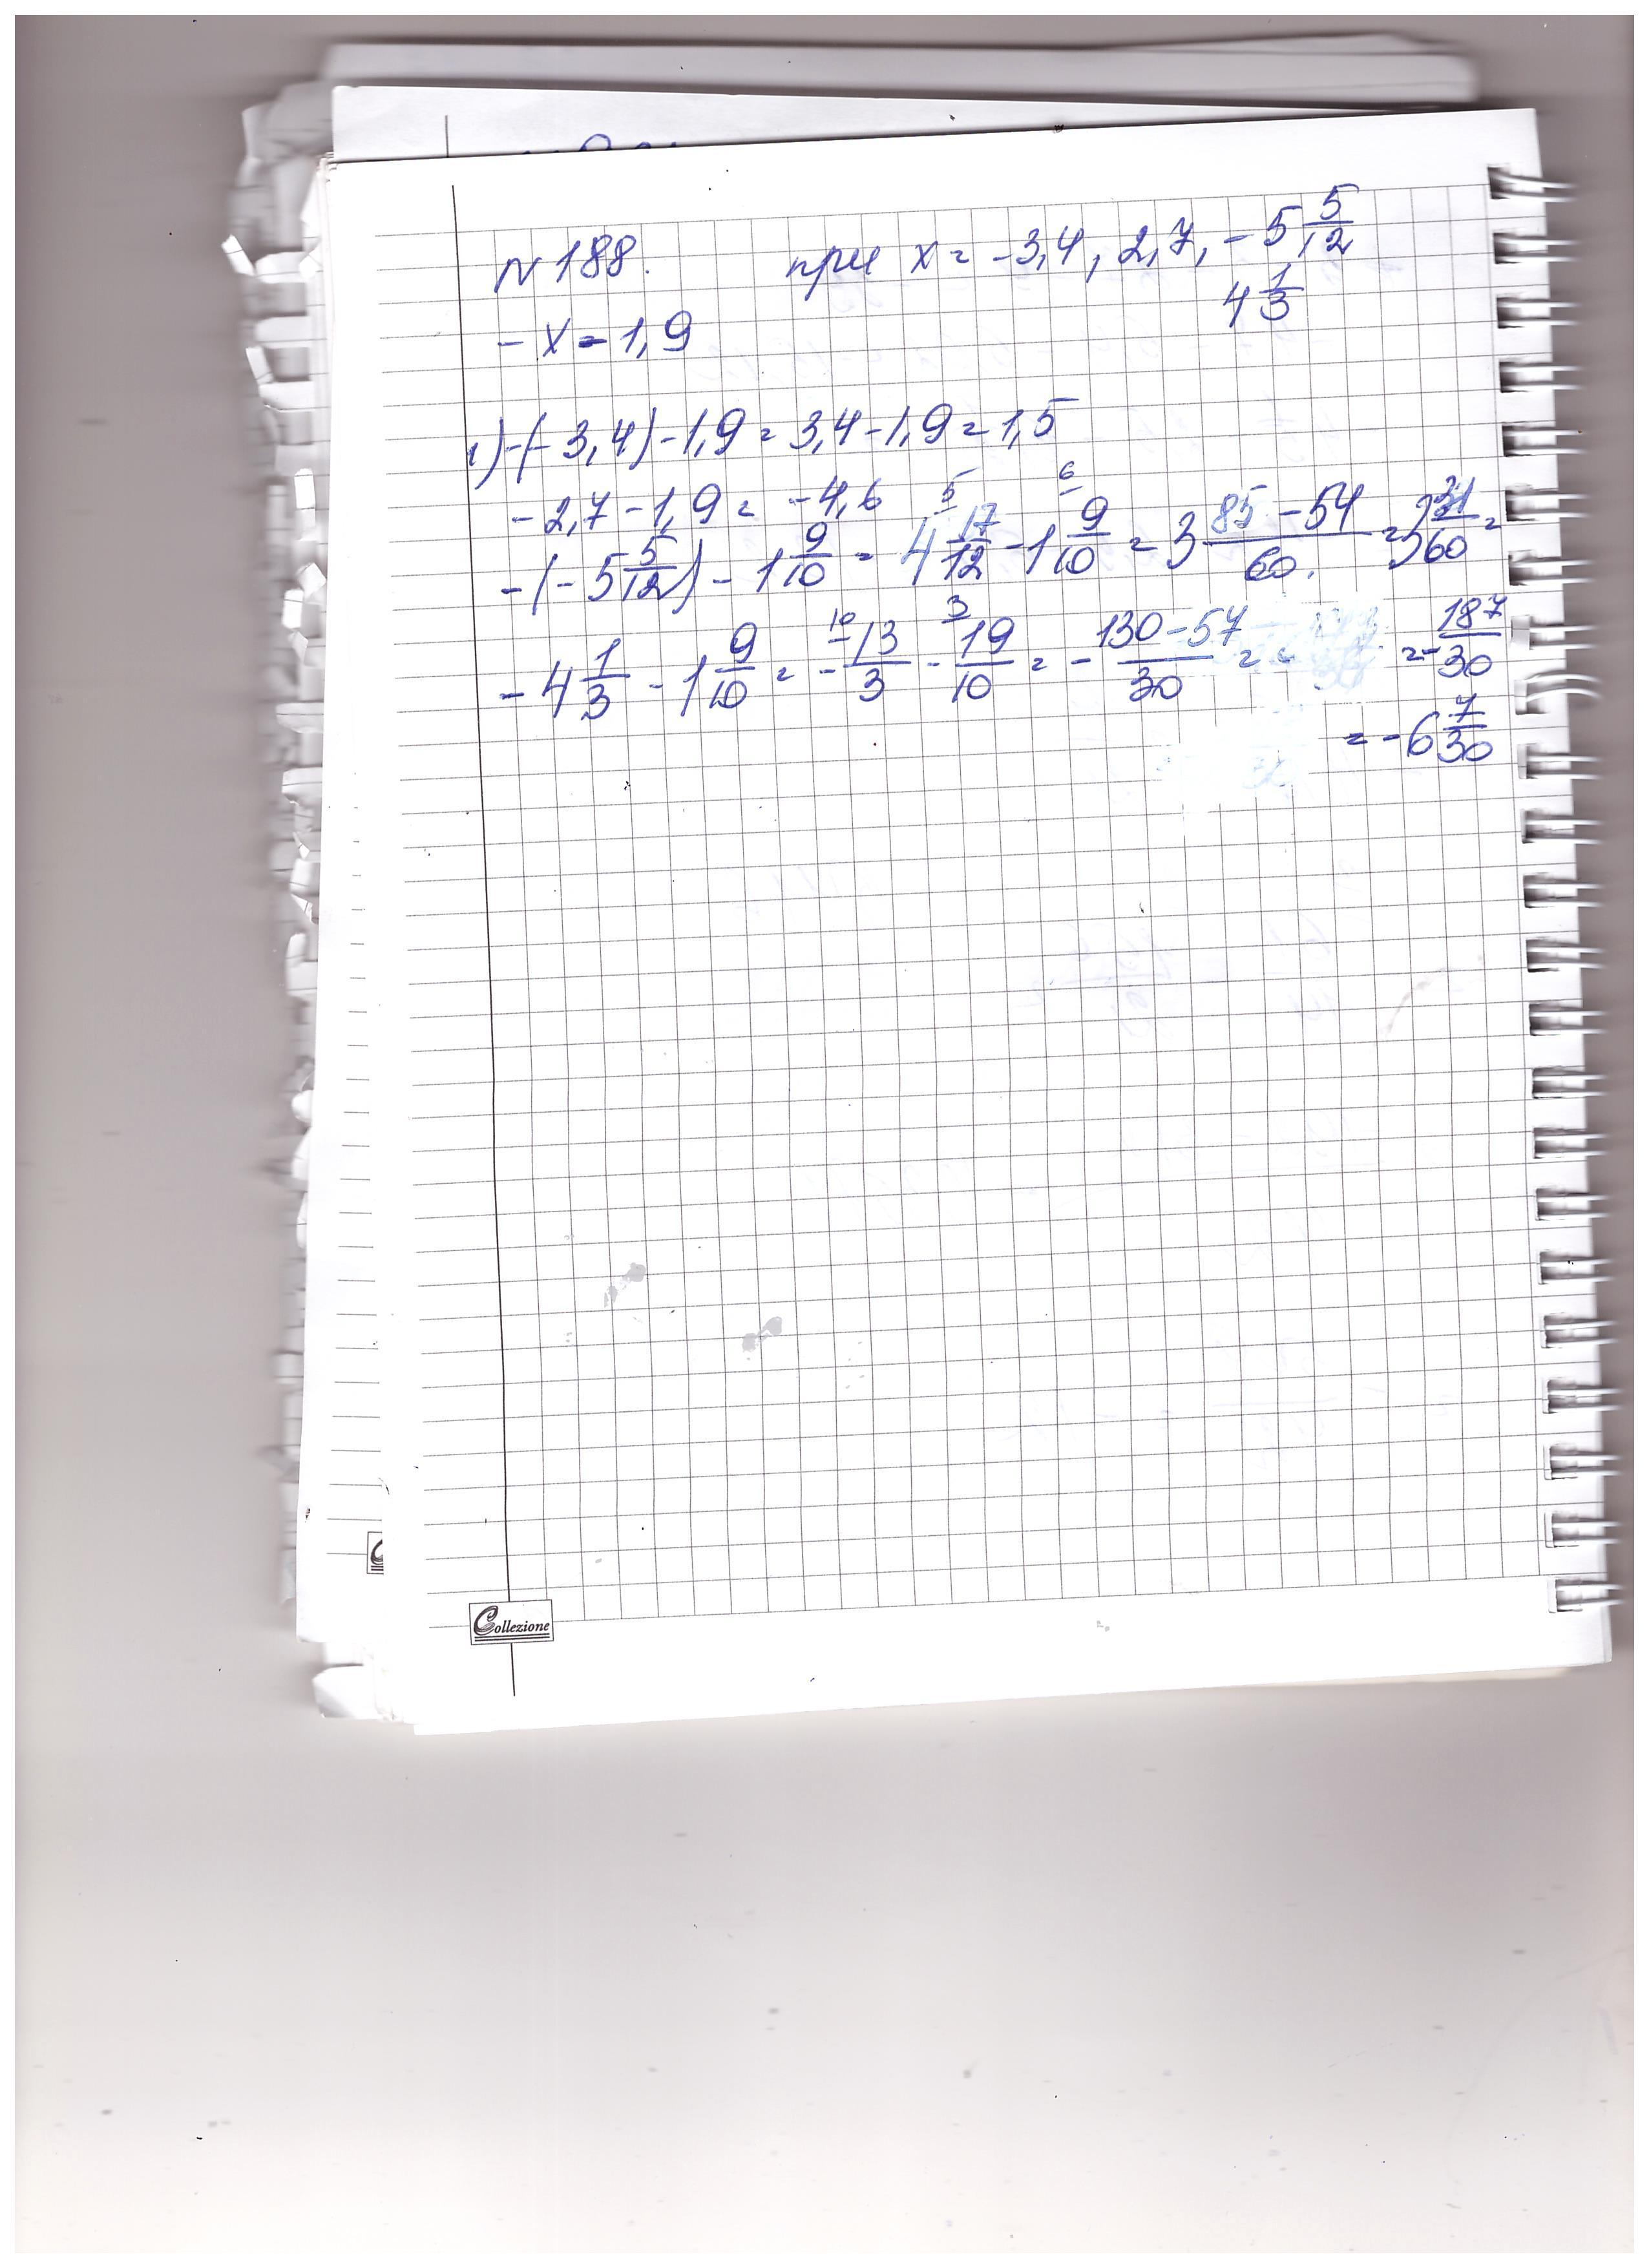 N 188. при x = -3,4, 2,7, -5 5/12
4 1/3
- x - 1,9
1) -(-3,4) - 1,9 = 3,4 - 1,9 = 1,5
- 2,7 - 1,9 = -4,6
-(-5 5/12) - 1 9/10 = 4 17/12 - 1 9/10 = 3 85-54/60 = 3 31/60 =
5 6
- 4 1/3 - 1 9/10 = - 13/3 - 19/10 = - 130-57/30 = = - 187/30
10 3
= - 6 7/30
Collezione